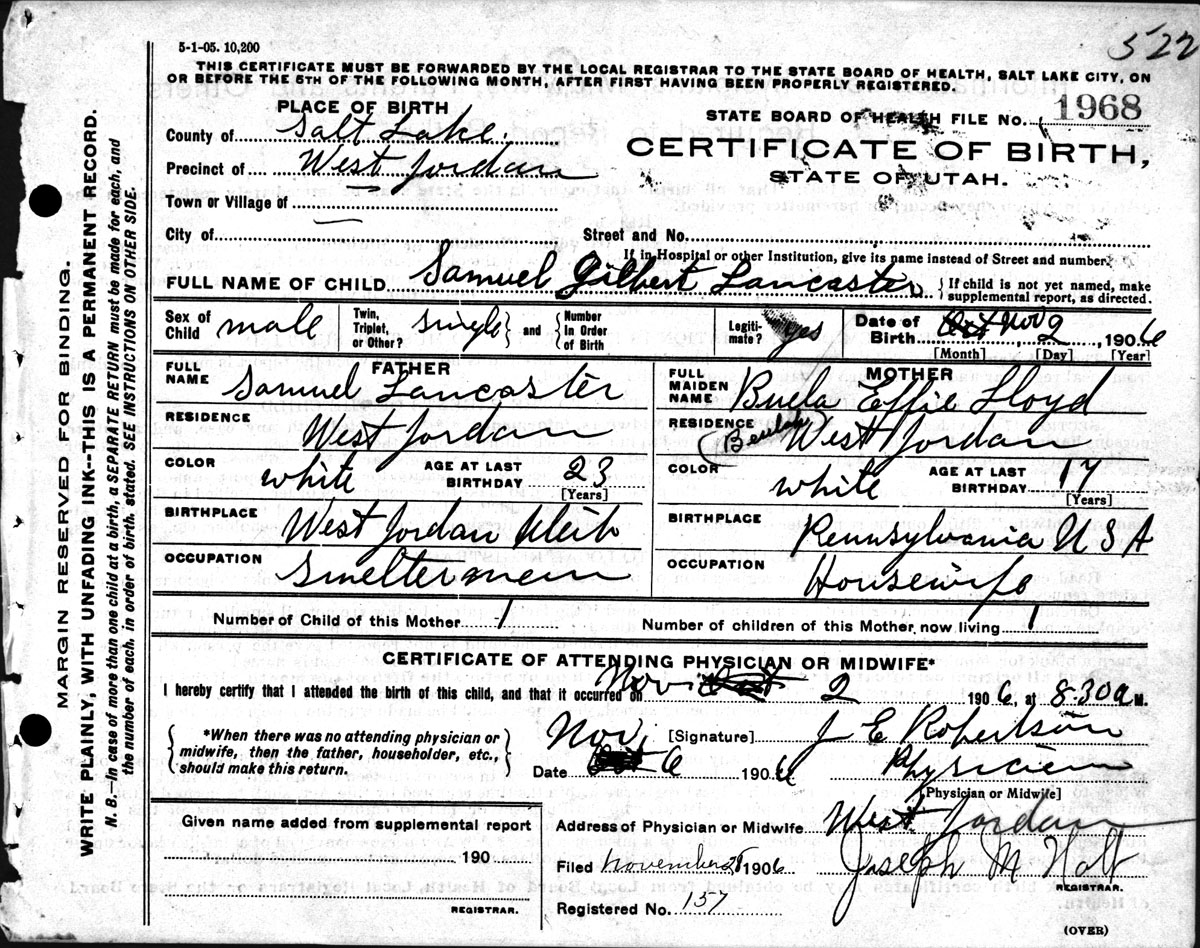 522
5-1-05. 10,200
THIS CERTIFICATE MUST BE FORWARDED BY THE LOCAL REGISTRAR TO THE STATE BOARD OF HEALTH, SALT LAKE CITY, ON
OR BEFORE THE 5TH OF THE FOLLOWING MONTH, AFTER FIRST HAVING BEEN PROPERLY REGISTERED.
PLACE OF BIRTH
STATE BOARD OF HEALTH FILE NO. 1968
County of Salt Lake.
CERTIFICATE OF BIRTH,
Precinct of West Jordan
STATE OF UTAH.
Town or Village of
City of
Street and No.
If in Hospital or other Institution, give its name instead of Street and number.
FULL NAME OF CHILD Samuel Gilbert Lancaster { If child is not yet named, make supplemental report, as directed.
Sex of Child male Twin, Triplet, or Other? single } and { Number in Order of Birth Legiti-mate? yes Date of Birth Oct Nov 2, 1906
[Month] [Day] [Year]
FATHER
MOTHER
FULL NAME Samuel Lancaster
FULL MAIDEN NAME Buela Effie Lloyd
(Beulah)
RESIDENCE West Jordan
RESIDENCE West Jordan
COLOR white AGE AT LAST BIRTHDAY 23 [Years]
COLOR white AGE AT LAST BIRTHDAY 17 [Years]
BIRTHPLACE West Jordan Utah
BIRTHPLACE Pennsylvania USA
OCCUPATION Smelterman
OCCUPATION Housewife
Number of Child of this Mother 1
Number of children of this Mother now living 1
CERTIFICATE OF ATTENDING PHYSICIAN OR MIDWIFE*
I hereby certify that I attended the birth of this child, and that it occurred on Nov Oct 2 1906, at 8-30 a M.
{ *When there was no attending physician or midwife, then the father, householder, etc., should make this return. }
[Signature] J E Robertson
Nov.
Date Oct 6 1906
Physician
[Physician or Midwife]
Given name added from supplemental report
190
REGISTRAR.
Address of Physician or Midwife West Jordan
Filed November 1906 Joseph M Holt
REGISTRAR.
Registered No. 157
(OVER)
MARGIN RESERVED FOR BINDING.
WRITE PLAINLY, WITH UNFADING INK--THIS IS A PERMANENT RECORD.
N. B.—In case of more than one child at a birth, a SEPARATE RETURN must be made for each, and
the number of each, in order of birth, stated. SEE INSTRUCTIONS ON OTHER SIDE.